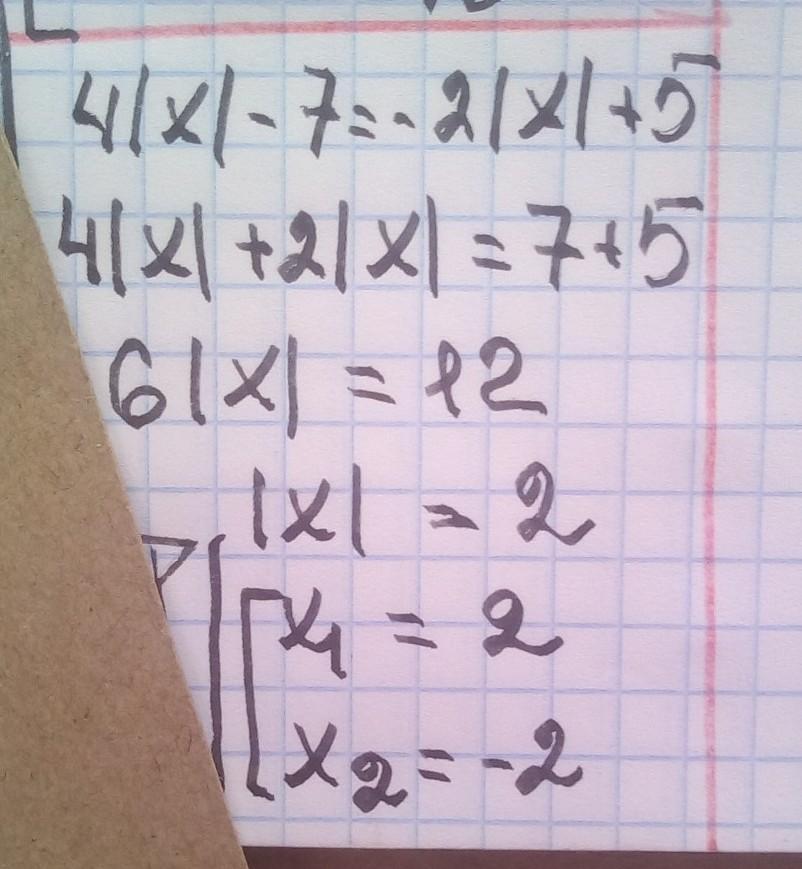 4|x| - 7 = - 2|x| + 5
4|x| + 2|x| = 7 + 5
6|x| = 12
|x| = 2
[x₁ = 2
x₂ = -2